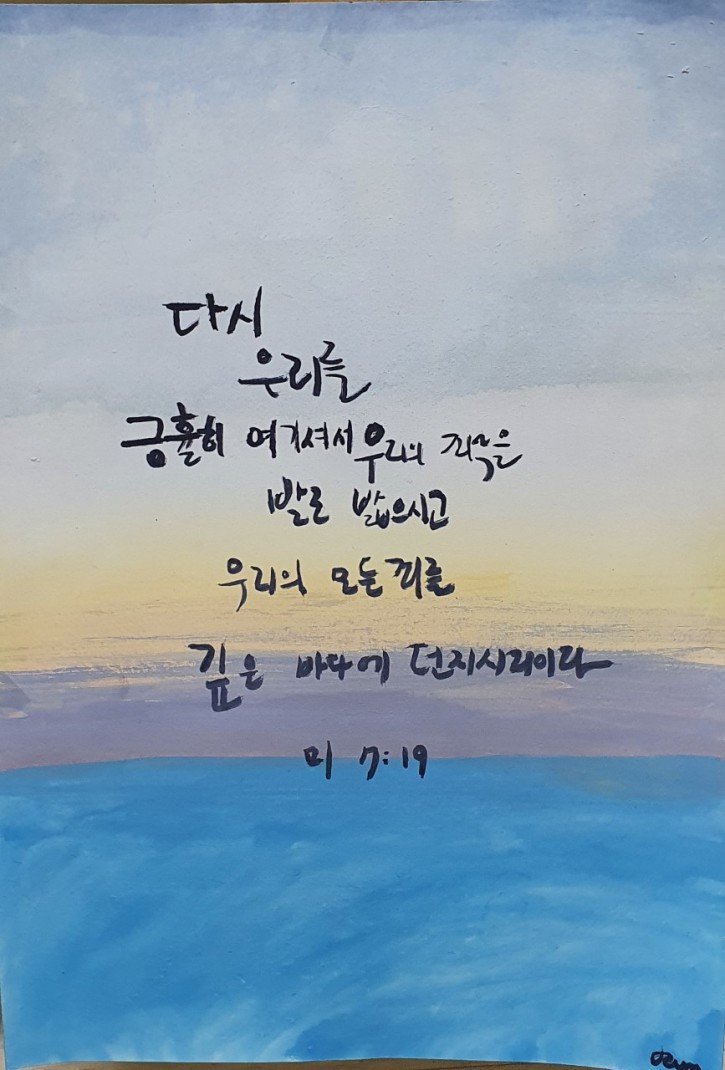 다시
우리를
긍휼히 여기셔서 우리의 죄악을
발로 밟으시고
우리의 모든 죄를
깊은 바다에 던지시리이다
미 7:19